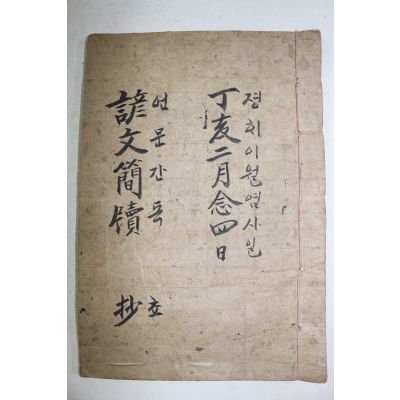 졍히이월염사일
丁亥二月念四日
언문간독 초
諺文簡牘 抄